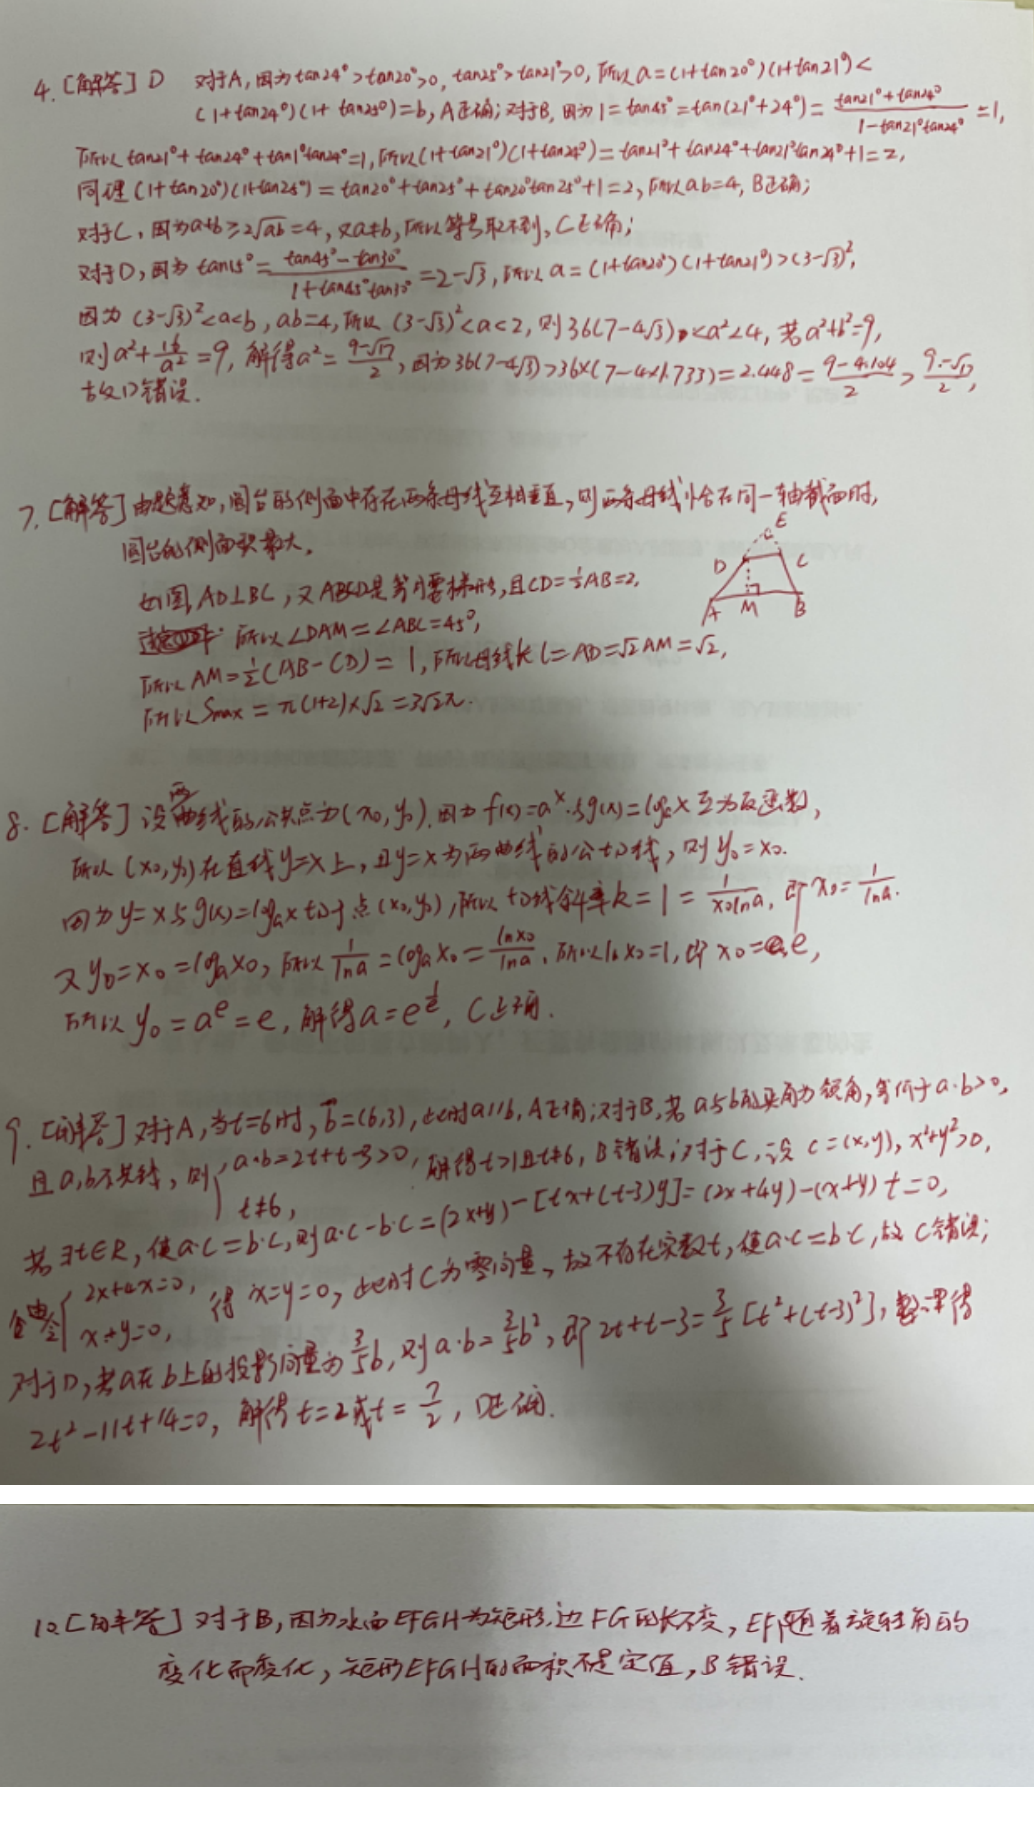 4. [解答] D 对于A, 因为tan24°>tan20°>0, tan25°>tan21°>0, 所以a=(1+tan20°)(1+tan21°)<
(1+tan24°)(1+tan25°)=b, A正确; 对于B, 因为1=tan45°=tan(21°+24°)=\frac{tan21°+tan24°}{1-tan21°tan24°}=1,
所以tan21°+tan24°+tan1°tan24°=1, 所以(1+tan21°)(1+tan24°)=tan21°+tan24°+tan21°tan24°+1=2,
同理(1+tan20°)(1+tan25°)=tan20°+tan25°+tan20°tan25°+1=2, 所以ab=4, B正确;
对于C, 因为a+b≥2√ab=4, 又a≠b, 所以等号取不到, C正确;
对于D, 因为tan15°=\frac{tan45°-tan30°}{1+tan45°tan30°}=2-√3, 所以a=(1+tan20°)(1+tan21°)>(3-√3)²,
因为(3-√3)²<a<b, ab=4, 所以(3-√3)²<a<2, 则36(7-4√3)<a²<4, 若a²+b²=9,
则a²+\frac{16}{a²}=9, 解得a²=\frac{9-√17}{2}, 因为36(7-4√3)>36×(7-4×1.733)=2.448=\frac{9-4.104}{2}>\frac{9-√17}{2},
故D错误.
7. [解答] 由题意知, 圆台的侧面中存在两条母线互相垂直, 则两条母线恰在同一轴截面时,
圆台的侧面积最大.
E
D C
A M B
如图, AD⊥BC, 又ABCD是等腰梯形, 且CD=½AB=2,
所以∠DAM=∠ABC=45°,
所以AM=½(AB-CD)=1, 所以母线长l=AD=√2AM=√2,
所以Smax=π(1+2)×√2=3√2π.
8. [解答] 设两曲线的公共点为(x₀,y₀). 因为f(x)=aˣ与g(x)=logₐx互为反函数,
所以(x₀,y₀)在直线y=x上, 且y=x为两曲线的公切线, 则y₀=x₀.
因为y=x与g(x)=logₐx切于点(x₀,y₀), 所以切线斜率k=1=\frac{1}{x₀lna}, 即x₀=\frac{1}{lna}.
又y₀=x₀=logₐx₀, 所以\frac{1}{lna}=logₐx₀=\frac{lnx₀}{lna}, 所以lnx₀=1, 即x₀=e,
所以y₀=aᵉ=e, 解得a=e^{\frac{1}{e}}, C正确.
9. [解答] 对于A, 当t=6时, b=(6,3), 此时a∥b, A正确; 对于B, 若a与b的夹角为锐角, 等价于a·b>0,
且a,b不共线, 则{a·b=2t+t-3>0, t≠6, 解得t>1且t≠6, B错误; 对于C, 设c=(x,y), x²+y²>0,
若∃t∈R, 使a·c=b·c, 则a·c-b·c=(2x+y)-[tx+(t-3)y]=(2x+4y)-(x+y)t=0,
由{2x+4x=0, x+y=0, 得x=y=0, 此时c为零向量, 故不存在实数t, 使a·c=b·c, 故C错误;
对于D, 若a在b上的投影向量为\frac{3}{5}b, 则a·b=\frac{3}{5}b², 即2t+t-3=\frac{3}{5}[t²+(t-3)²], 整理得
2t²-11t+14=0, 解得t=2或t=\frac{7}{2}, D正确.
10. [解答] 对于B, 因为水面EFGH为矩形, 边FG的长不变, EF随着旋转角的
变化而变化, 矩形EFGH的面积不是定值, B错误.